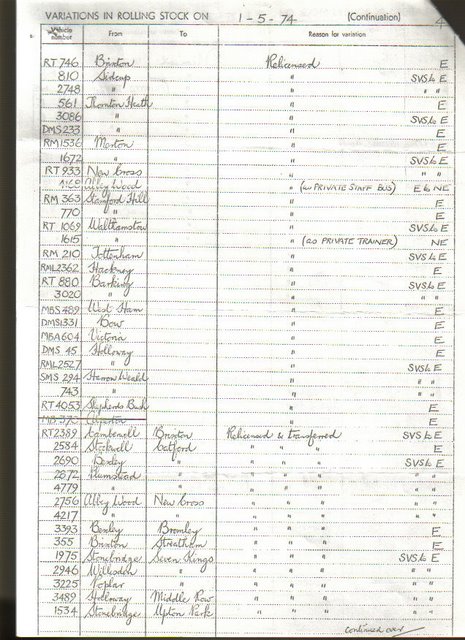 VARIATIONS IN ROLLING STOCK ON 1-5-74 (Continuation) 4
Vehicle number From To Reason for variation
RT 746 Brixton Relicensed E
810 Sidcup " SVS to E
2748 " " " "
561 Thornton Heath " E
3086 " " SVS to E
DMS 233 " " E
RM 1536 Merton " E
1672 " " SVS to E
RT 933 New Cross " " "
Abbey Wood " (as PRIVATE STAFF BUS) E to NE
RM 363 Stamford Hill " E
770 " " E
RT 1069 Walthamstow " SVS to E
1615 " " (as PRIVATE TRAINER) NE
RM 210 Tottenham " SVS to E
RML2362 Hackney " E
RT 880 Barking " SVS to E
3020 " " " "
MBS 489 West Ham " E
DMS1331 Bow " E
MBA604 Victoria " E
DMS 45 Holloway " E
RML2527 " " SVS to E
SMS 294 Harrow Weald " " "
743 " " " "
RT 4053 Shepherds Bush " E
MB 370 Alperton " E
RT2389 Camberwell Brixton Relicensed & transferred SVS to E
2584 Stockwell Catford " " " E
2690 Bexley " " " " SVS to E
2872 Plumstead " " " " " "
4779 " " " " " " "
2756 Abbey Wood New Cross " " " " "
4217 " " " " " " "
3393 Bexley Bromley " " " E
355 Brixton Streatham " " " E
1975 Stonebridge Seven Kings " " " SVS to E
2946 Willesden " " " " " "
3225 Poplar " " " " " "
3489 Holloway Middle Row " " " " "
1534 Stonebridge Upton Park " " " " "
continued over